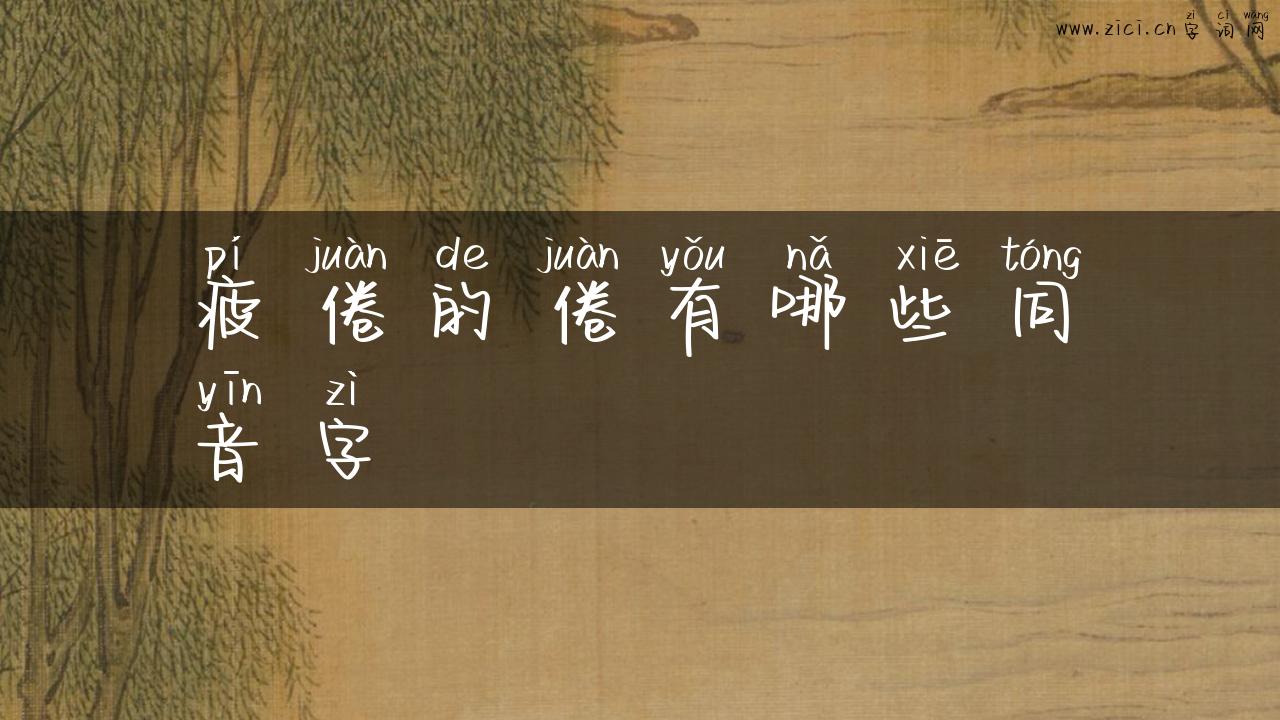 zì cí wǎng
www.zici.cn字词网
pí juàn de juàn yǒu nǎ xiē tóng
疲倦的倦有哪些同
yīn zì
音字